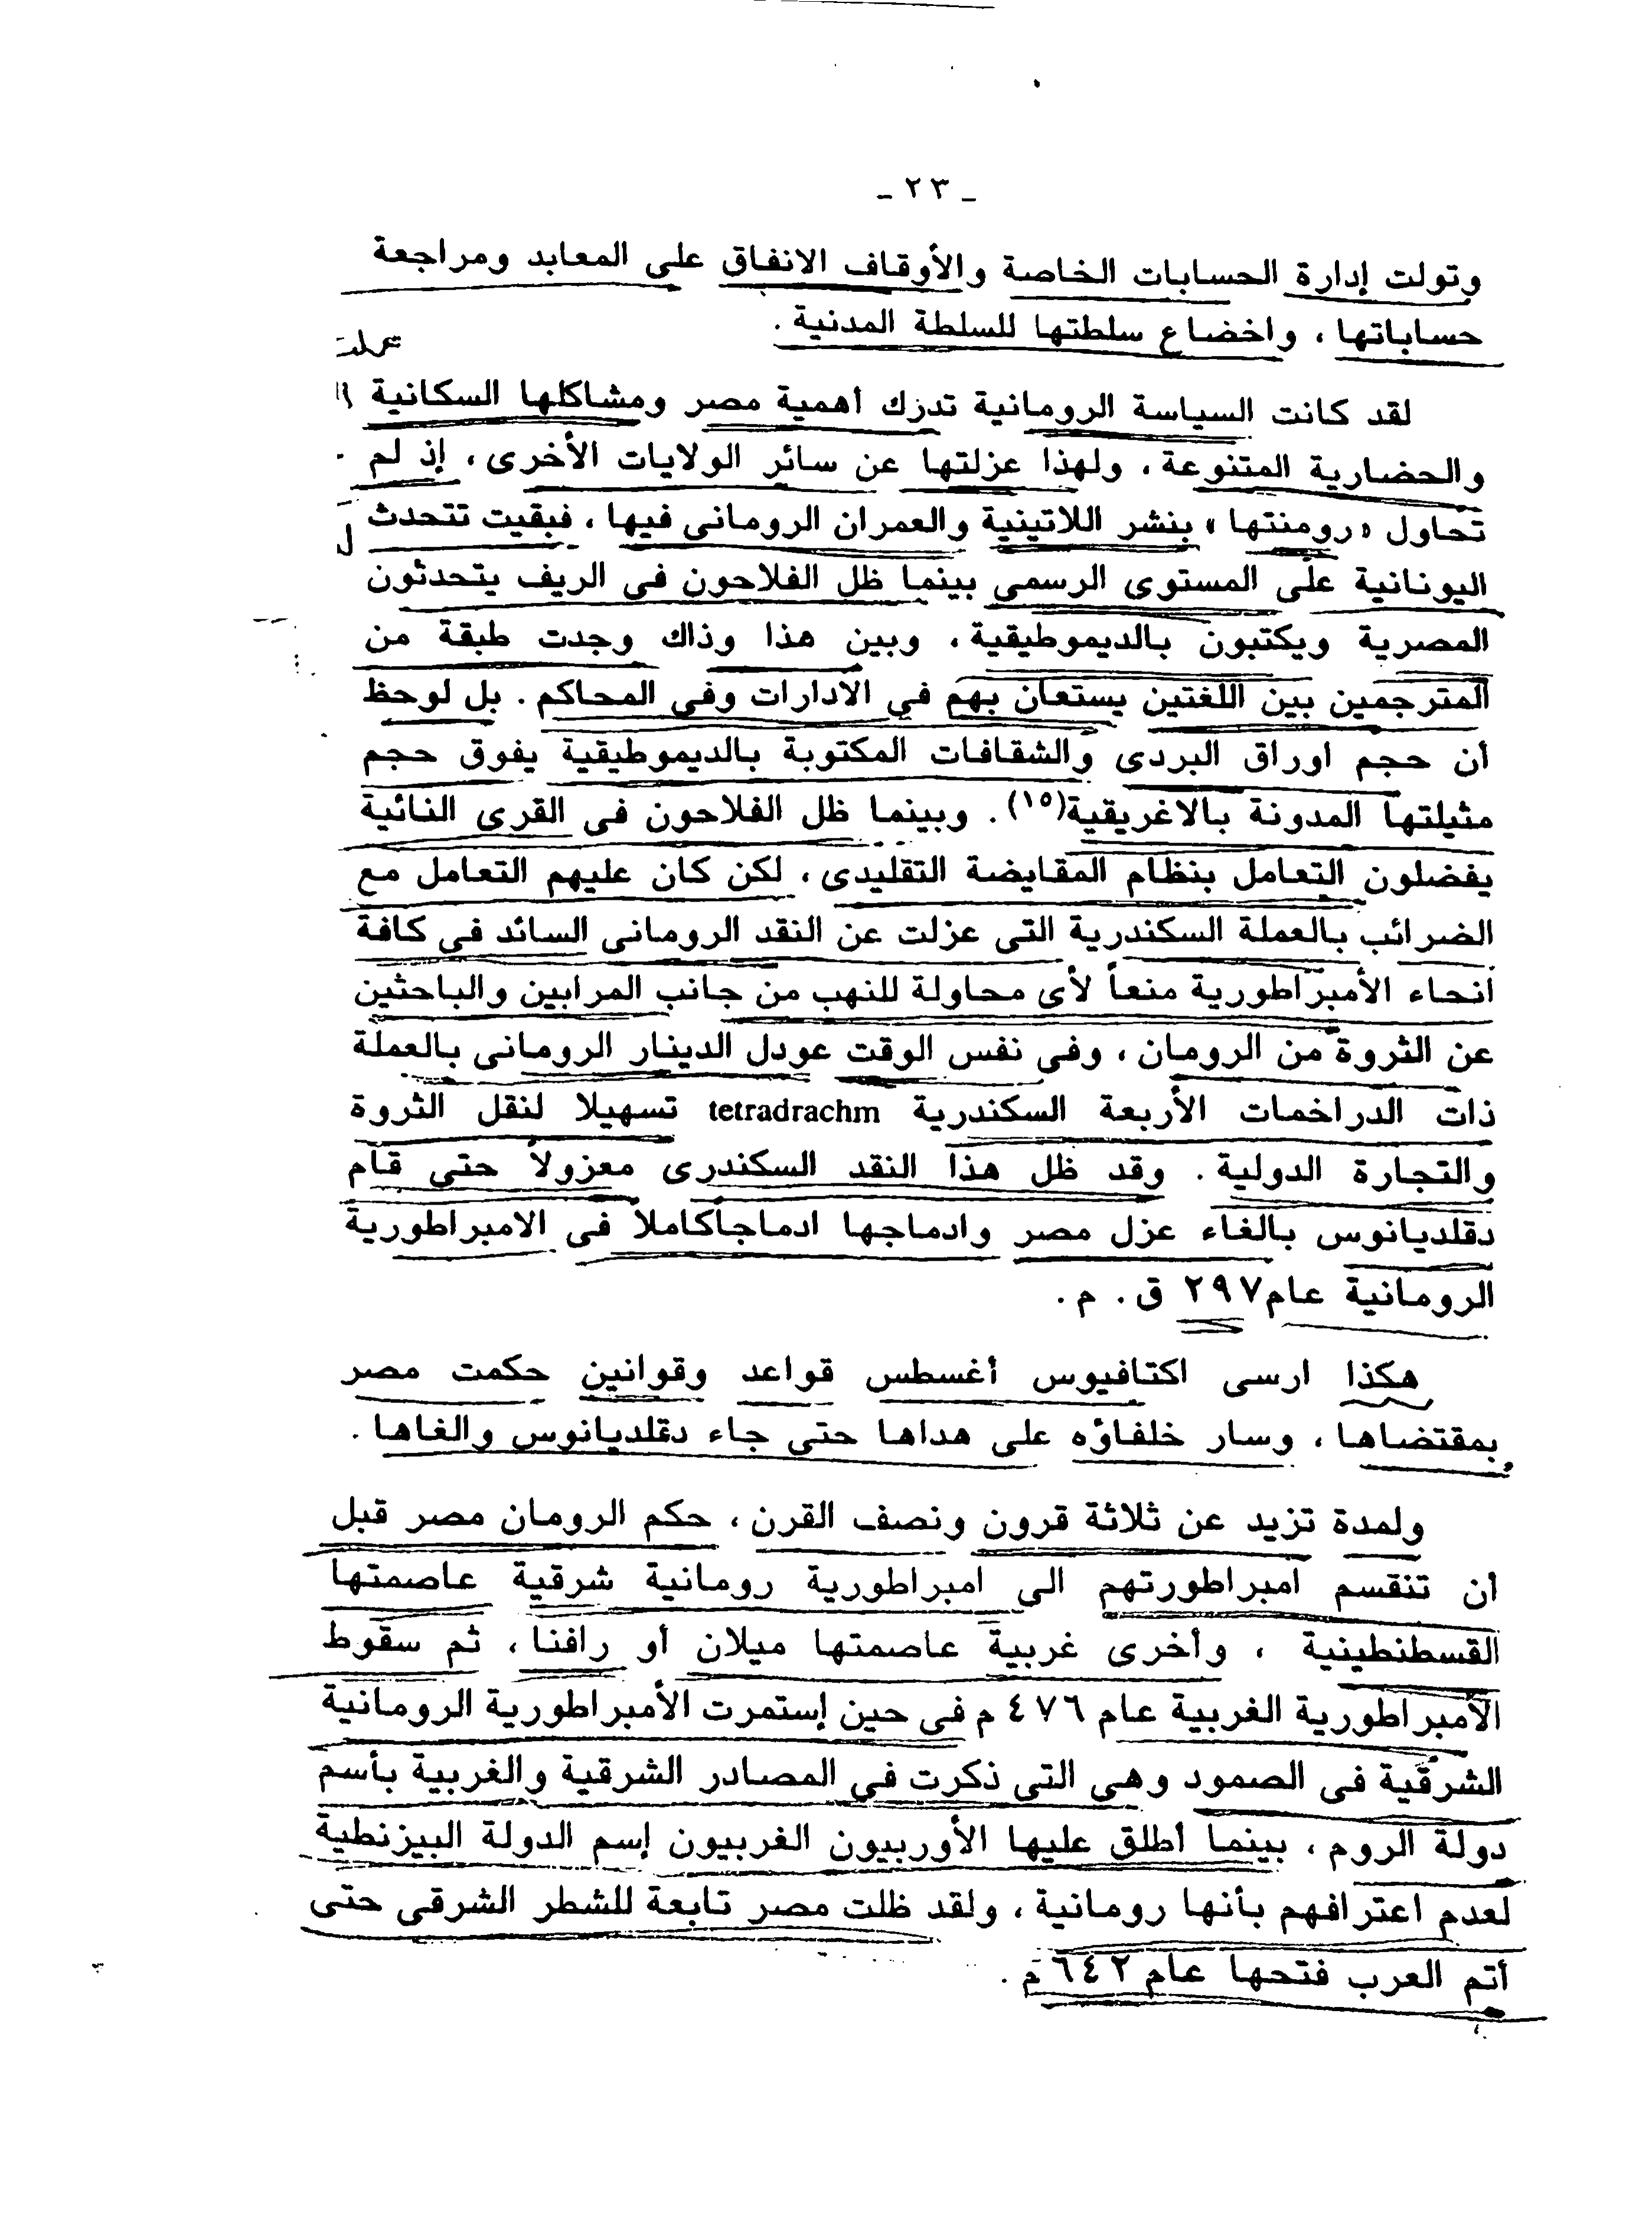 ـ ٢٣ ـ
وتولت إدارة الحسابات الخاصة والأوقاف الانفاق على المعابد ومراجعة
حساباتها ، واخضاع سلطتها للسلطة المدنية .
لقد كانت السياسة الرومانية تدرك أهمية مصر ومشاكلها السكانية
والحضارية المتنوعة ، ولهذا عزلتها عن سائر الولايات الأخرى ، إذ لم
تحاول «رومنتها» بنشر اللاتينية والعمران الرومانى فيها ، فبقيت تتحدث
اليونانية على المستوى الرسمى بينما ظل الفلاحون فى الريف يتحدثون
المصرية ويكتبون بالديموطيقية ، وبين هذا وذاك وجدت طبقة من
المترجمين بين اللغتين يستعان بهم في الادارات وفى المحاكم . بل لوحظ
أن حجم اوراق البردى والشقافات المكتوبة بالديموطيقية يفوق حجم
مثيلتها المدونة بالاغريقية(١٥) . وبينما ظل الفلاحون فى القرى النائية
يفضلون التعامل بنظام المقايضة التقليدى ، لكن كان عليهم التعامل مع
الضرائب بالعملة السكندرية التى عزلت عن النقد الرومانى السائد فى كافة
انحاء الأمبراطورية منعاً لأى محاولة للنهب من جانب المرابين والباحثين
عن الثروة من الرومان ، وفى نفس الوقت عودل الدينار الرومانى بالعملة
ذات الدراخمات الأربعة السكندرية tetradrachm تسهيلا لنقل الثروة
والتجارة الدولية . وقد ظل هذا النقد السكندرى معزولاً حتى قام
دقلديانوس بالغاء عزل مصر وادماجها ادماجاًكاملاً فى الامبراطورية
الرومانية عام٢٩٧ ق . م .
هكذا ارسى اكتافيوس أغسطس قواعد وقوانين حكمت مصر
بمقتضاها ، وسار خلفاؤه على هداها حتى جاء دقلديانوس والغاها .
ولمدة تزيد عن ثلاثة قرون ونصف القرن ، حكم الرومان مصر قبل
أن تنقسم امبراطورتهم الى امبراطورية رومانية شرقية عاصمتها
القسطنطينية ، وأخرى غربية عاصمتها ميلان أو رافنا ، ثم سقوط
الأمبراطورية الغربية عام ٤٧٦ م فى حين إستمرت الأمبراطورية الرومانية
الشرقية فى الصمود وهى التى ذكرت في المصادر الشرقية والغربية بأسم
دولة الروم ، بينما أطلق عليها الأوربيون الغربيون إسم الدولة البيزنطية
لعدم اعترافهم بأنها رومانية ، ولقد ظلت مصر تابعة للشطر الشرقى حتى
أتم العرب فتحها عام ٦٤٢ م .